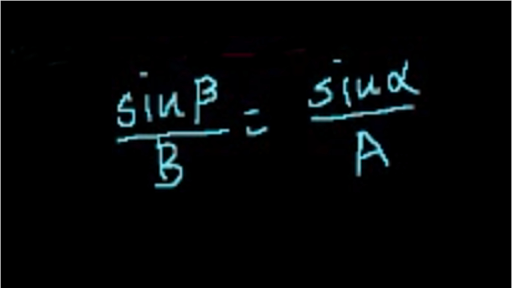 sin β / B = sin α / A